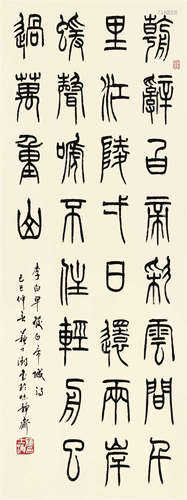 朝辭白帝彩雲間千
里江陵弌日還兩岸
蝯聲嗁不住輕舟已
過萬重山
李白早發白帝城詩
己巳仲